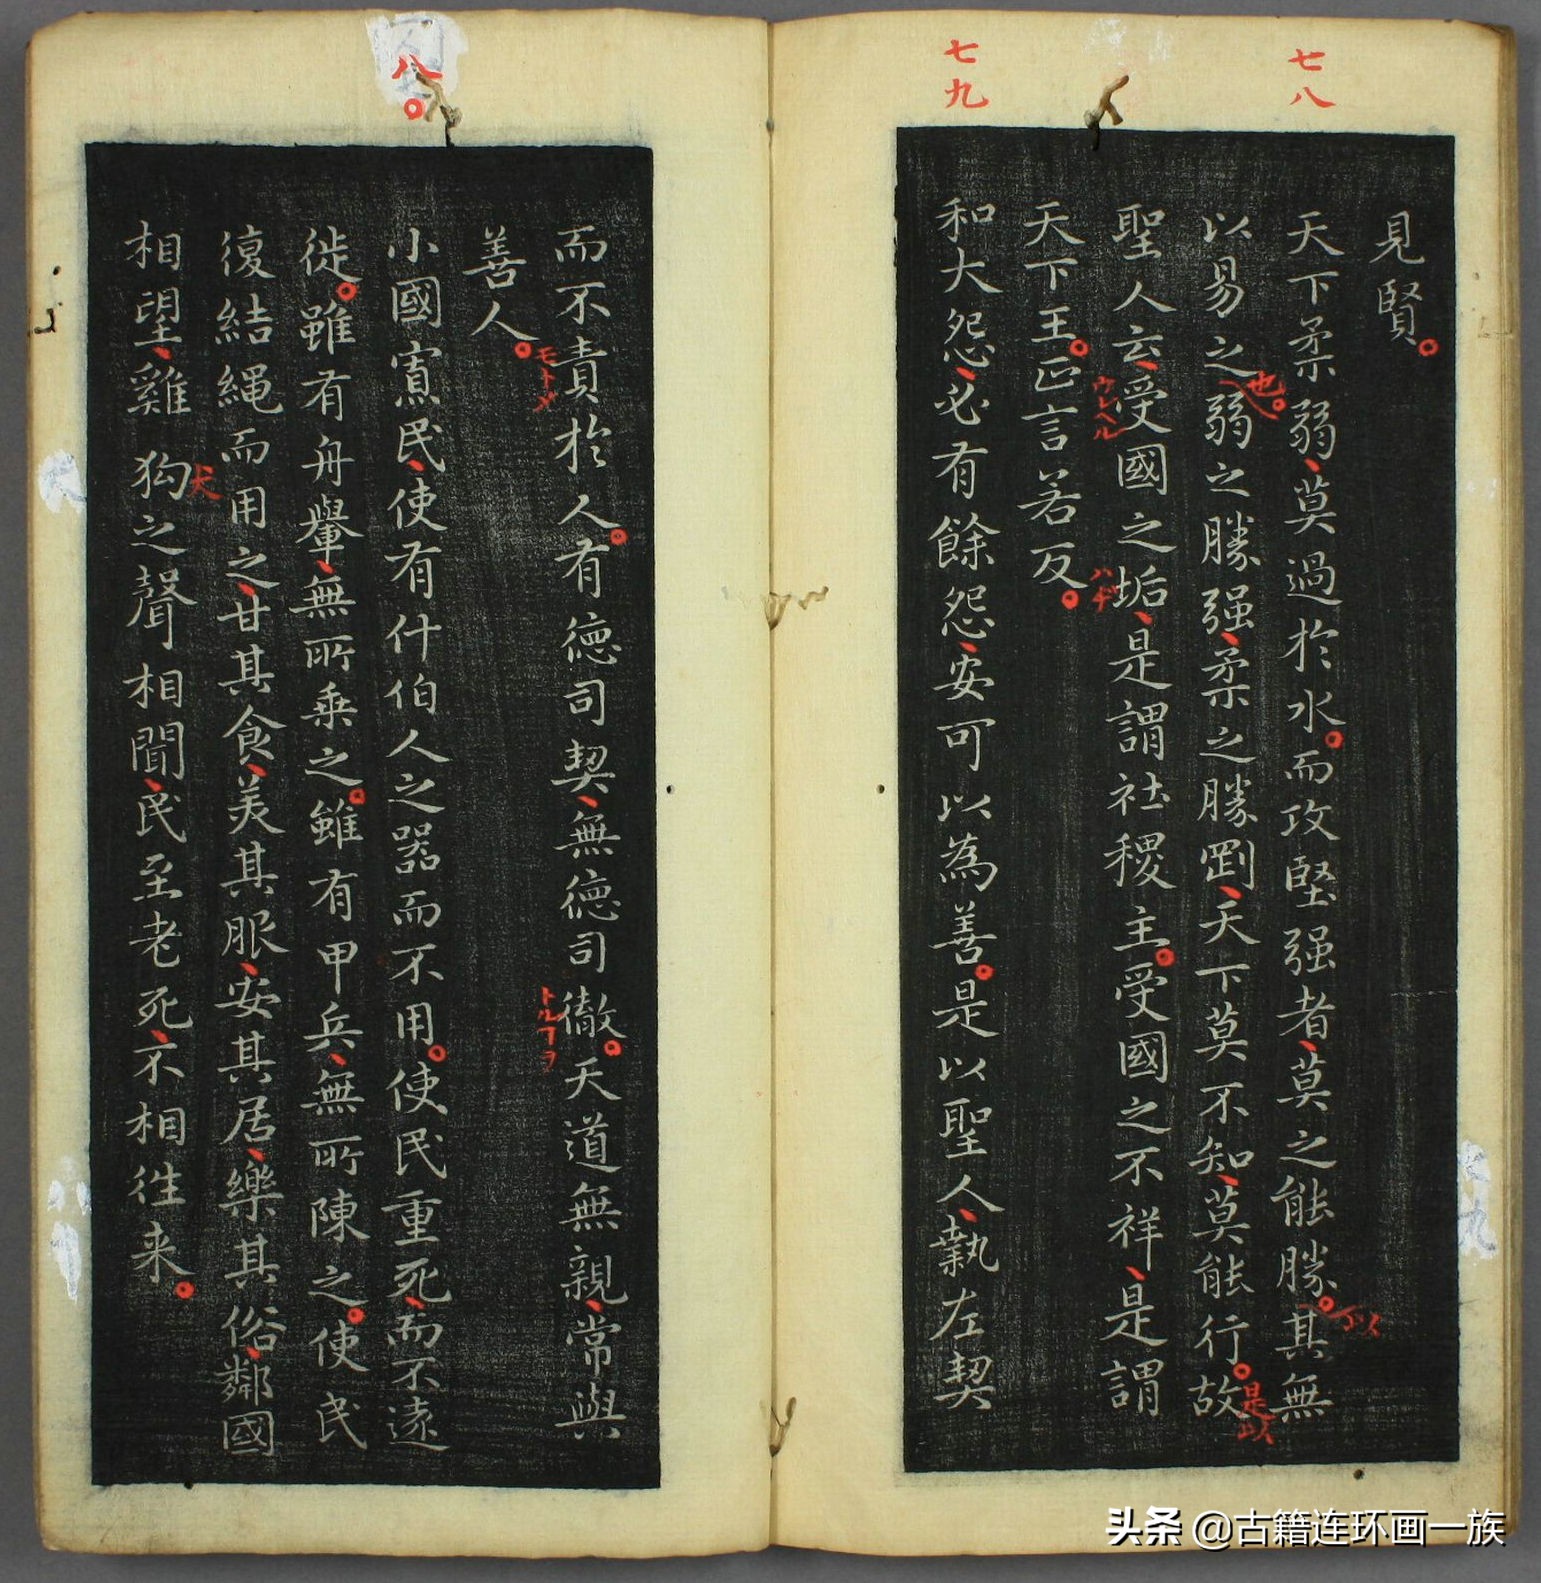 七八
七九
見賢
天下柔弱莫過於水而攻堅强者莫之能勝其無
以
以易之弱之勝强柔之勝剛天下莫不知莫能行故
也
是以
聖人云受國之垢是謂社稷主受國之不祥是謂
ウレヘル
ハヂ
天下王正言若反
和大怨必有餘怨安可以為善是以聖人執左契
八〇
而不責於人有德司契無德司徹天道無親常與
モトメ
トルヿヲ
善人
小國寡民使有什伯人之器而不用使民重死而不遠
徙雖有舟轝無所乗之雖有甲兵無所陳之使民
復結縄而用之甘其食美其服安其居樂其俗鄰國
相望雞狗之聲相聞民至老死不相徃来
犬
头条 @古籍连环画一族